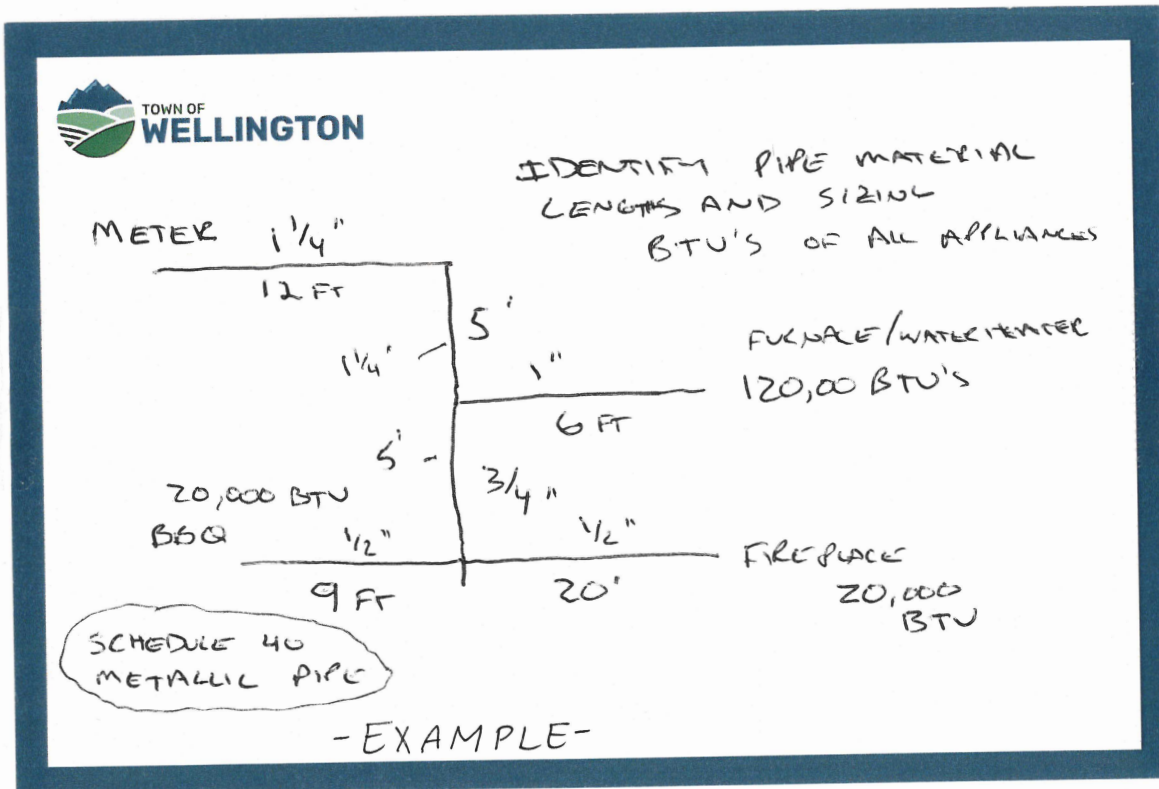 TOWN OF
WELLINGTON
IDENTIFY PIPE MATERIAL
LENGTHS AND SIZING
BTU'S OF ALL APPLIANCES
METER 1 1/4"
12 FT
5'
1 1/4"
1"
FURNACE/WATER HEATER
120,00 BTU'S
6 FT
5'
3/4"
20,000 BTU
BBQ
1/2"
1/2"
FIREPLACE
9 FT
20'
20,000
BTU
SCHEDULE 40
METALLIC PIPE
-EXAMPLE-